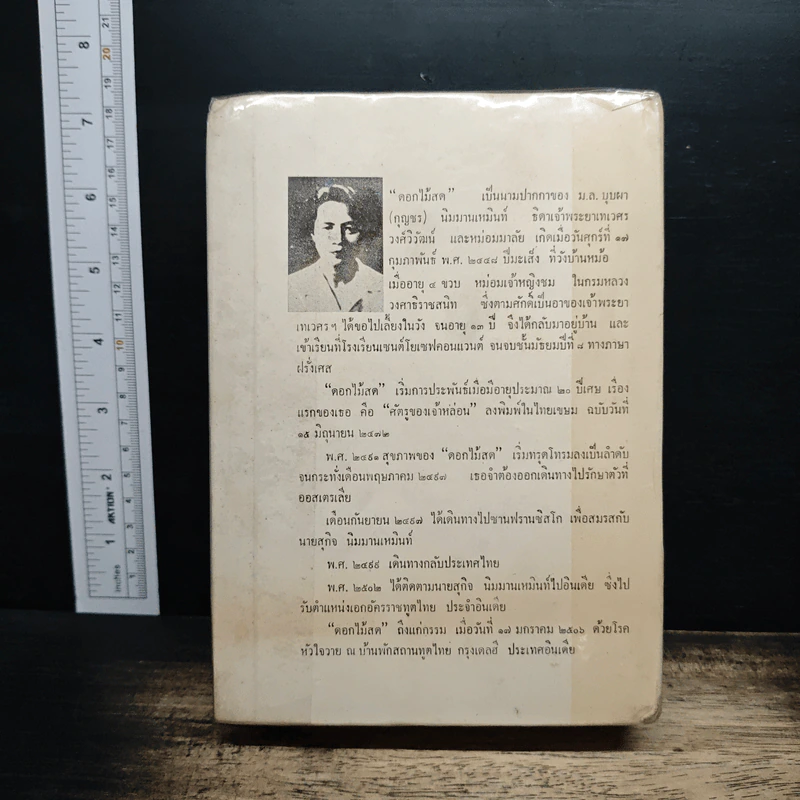 "ดอกไม้สด" เป็นนามปากกาของ ม.ล. บุบผา
(กุญชร) นิมมานเหมินท์ ธิดาเจ้าพระยาเทเวศร
วงศ์วิวัฒน์ และหม่อมมาลัย เกิดเมื่อวันศุกร์ที่ ๑๗
กุมภาพันธ์ พ.ศ. ๒๔๔๘ ปีมะเส็ง ที่วังบ้านหม้อ
เมื่ออายุ ๔ ขวบ หม่อมเจ้าหญิงชม ในกรมหลวง
วงศาธิราชสนิท ซึ่งตามศักดิ์เป็นอาของเจ้าพระยา
เทเวศร ฯ ได้ขอไปเลี้ยงในวัง จนอายุ ๑๓ ปี จึงได้กลับมาอยู่บ้าน และ
เข้าเรียนที่โรงเรียนเซนต์โยเซฟคอนแวนต์ จนจบชั้นมัธยมปีที่ ๘ ทางภาษา
ฝรั่งเศส
"ดอกไม้สด" เริ่มการประพันธ์เมื่อมีอายุประมาณ ๒๐ ปีเศษ เรื่อง
แรกของเธอ คือ "ศัตรูของเจ้าหล่อน" ลงพิมพ์ในไทยเขษม ฉบับวันที่
๑๕ มิถุนายน ๒๔๗๒
พ.ศ. ๒๔๙๑ สุขภาพของ "ดอกไม้สด" เริ่มทรุดโทรมลงเป็นลำดับ
จนกระทั่งเดือนพฤษภาคม ๒๔๙๗ เธอจำต้องออกเดินทางไปรักษาตัวที่
ออสเตรเลีย
เดือนกันยายน ๒๔๙๗ ได้เดินทางไปซานฟรานซิสโก เพื่อสมรสกับ
นายสุกิจ นิมมานเหมินท์
พ.ศ. ๒๔๙๙ เดินทางกลับประเทศไทย
พ.ศ. ๒๕๐๒ ได้ติดตามนายสุกิจ นิมมานเหมินท์ไปอินเดีย ซึ่งไป
รับตำแหน่งเอกอัครราชทูตไทย ประจำอินเดีย
"ดอกไม้สด" ถึงแก่กรรม เมื่อวันที่ ๑๗ มกราคม ๒๕๐๖ ด้วยโรค
หัวใจวาย ณ บ้านพักสถานทูตไทย กรุงเดลฮี ประเทศอินเดีย